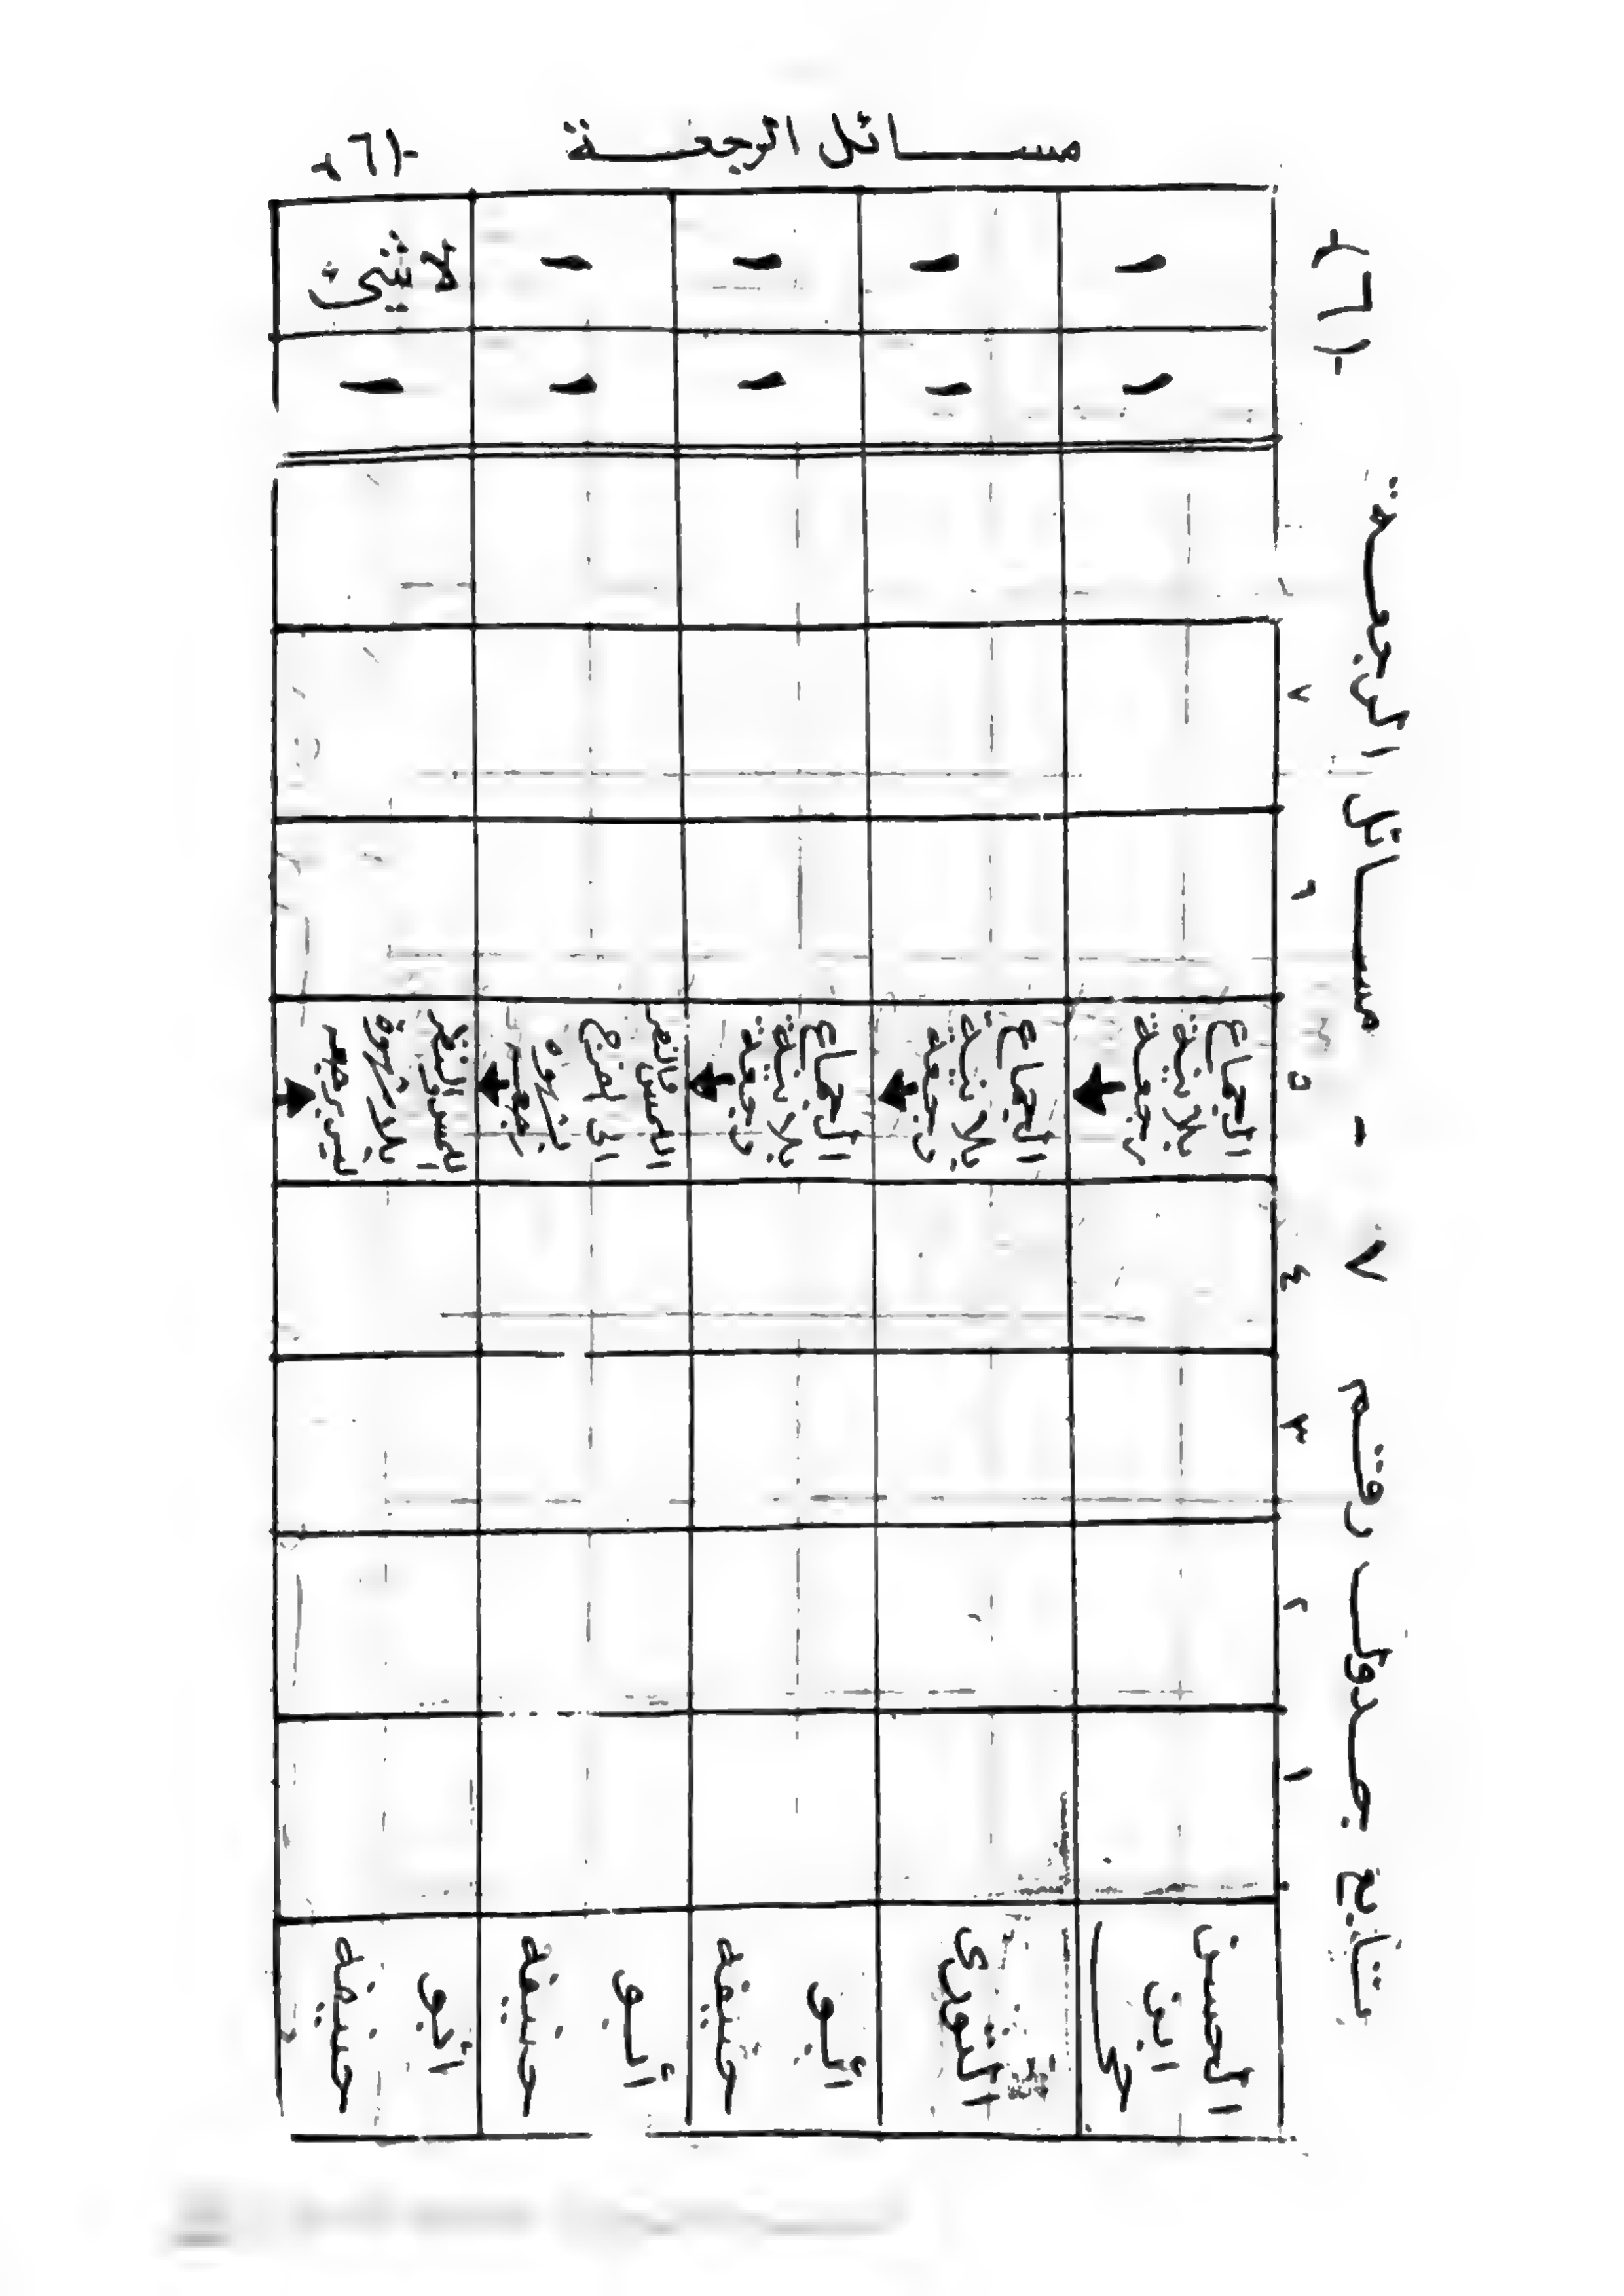 مسائل الرجعة
(٦)
تابع جدول رقم ٧ - مسائل الرجعة (٦)
١ ٢ ٣ ٤ ٥ ٦ ٧
الحسن ابن حى
الجماع بلا نية رجعة
- -
الثورى
الجماع بلا نية رجعة
- -
أبو حنيفه
الجماع بلا نية رجعة
- -
أبو حنيفه
اللمس بشهوة رجعه
- -
أبو حنيفه
اللمس النظر بلا شهوة ليس برجعه
- لا شيئ